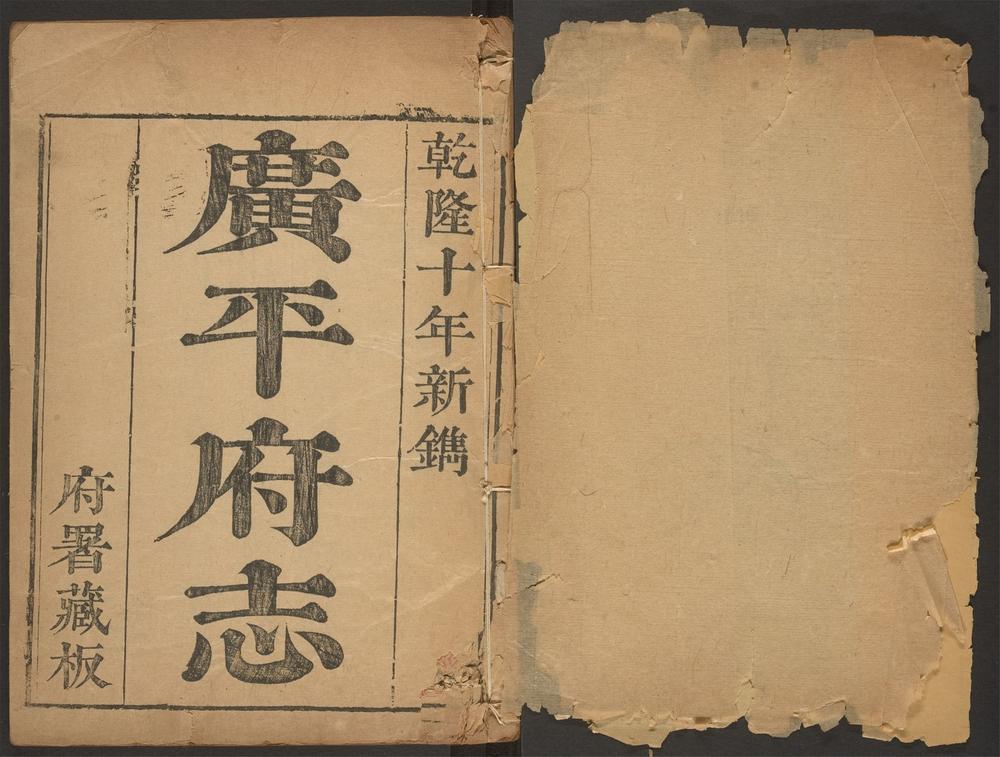 乾隆十年新鐫
廣平府志
府署藏板